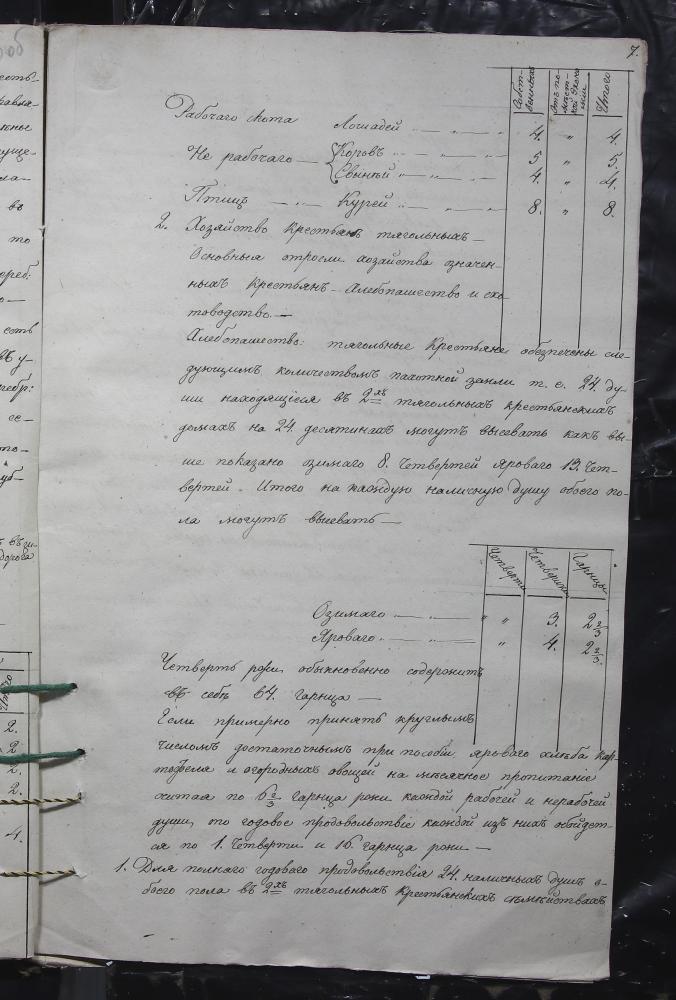 7.
Собст-
венныхъ
Отъ по-
мѣст-
кой Эконо
міи
Итого
Рабочаго скота Лошадей — „ — „ 4. „ 4.
Не рабочаго — { Коровъ „ — „ — „ 5 „ 5.
Свиней „ — „ — „ 4. „ 4.
Птицъ — „ — Курей „ — „ — „ 8. „ 8.
2. Хозяйство крестьянъ тяголныхъ —
Основныя отросли хозяйства означен-
ныхъ Крестьянъ — Хлебопашество и ско
товодство. —
Хлебопашество: тягольные Крестьяне обезпечены сле-
дующимъ количествомъ пахотной земли т. е. 24 ду-
ши находящіеся въ 2хъ тягольныхъ крестьянскихъ
домахъ на 24. десятинахъ могутъ высевать какъ вы-
ше показано озимаго 8. Четвертей Яроваго 13. Чет-
вертей. Итого на каждую наличную душу обоего по-
ла могутъ высевать —
Четверти Четверики Гарнцы
Озимаго — „ — „ 3. 2 2/3
Яроваго. — „ — „ 4. 2 2/3.
Четверть ржи обыкновенно содержитъ
въ себѣ 64. гарнца —
Если примерно принять круглымъ
числомъ достаточнымъ при пособіи яроваго хлѣба кар-
тофеля и огородныхъ овощей на мѣсячное пропитаніе
считая по 6 2/3 гарнца ржи каждой рабочей и нерабочей
души, то годовое продовольствіе каждой изъ нихъ обойдет-
ся по 1. Четверти и 16. гарнца ржи —
1. Для полнаго годоваго продовольствія 24. наличныхъ душъ о-
боего пола въ 2хъ тягольныхъ Крестьянскихъ семѣйствахъ